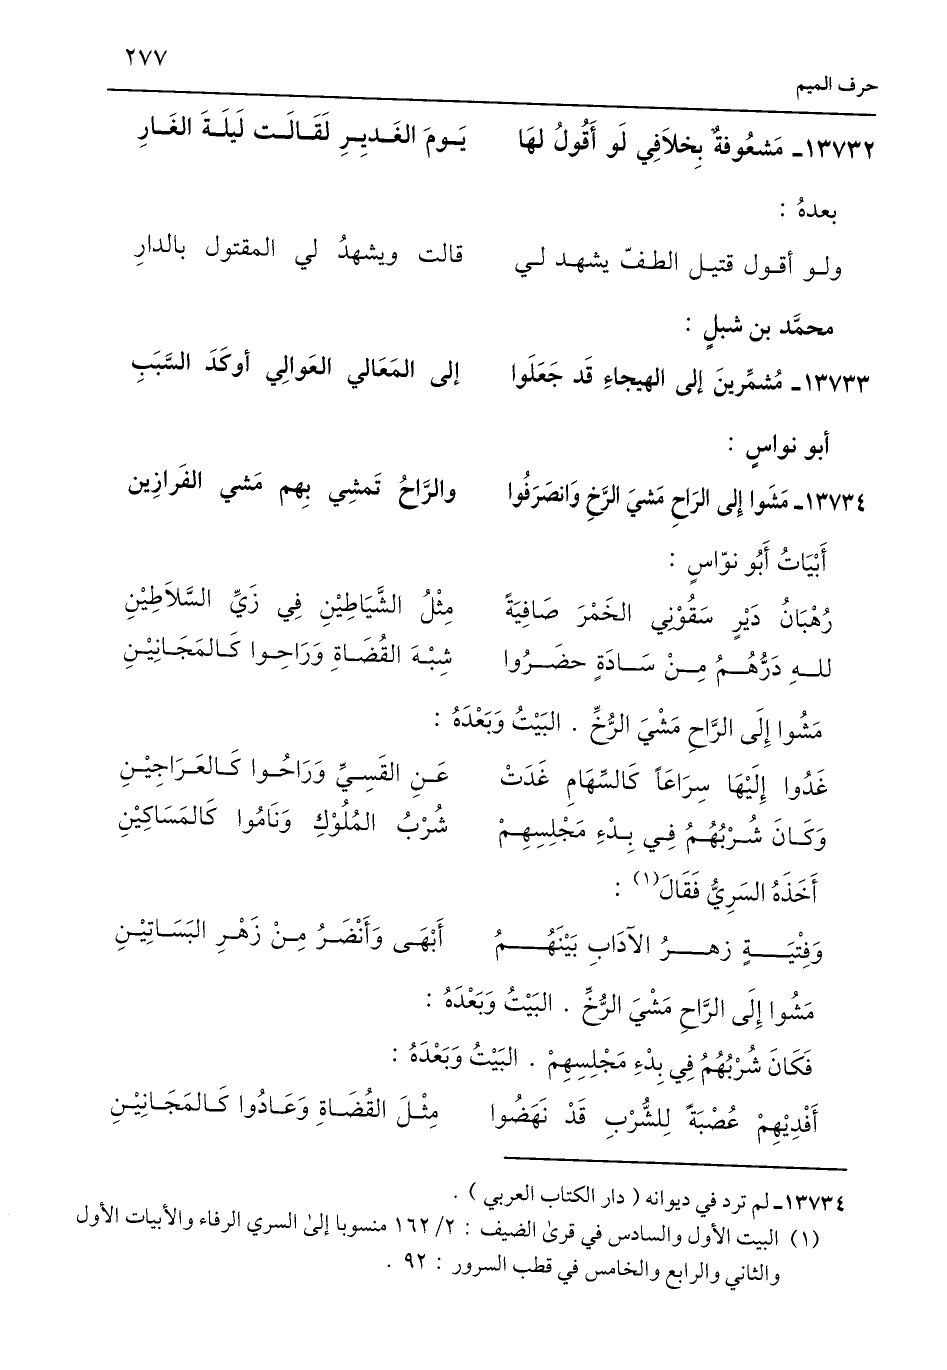 ٢٧٧
حرف الميم
١٣٧٣٢ـ مَشعُوفةٌ بِخلاَفِي لَو أَقُولُ لهَا يَـومَ الغَـديِـرِ لَقَـالَـت لَيلَـةَ الغَـارِ
بعدهُ :
ولـو أقـول قتيـل الطـفّ يشهـد لـي قالت ويشهدُ لي المقتول بالدارِ
محمَّد بن شبلٍ :
١٣٧٣٣ـ مُشمِّرينَ إلى الهيجاءِ قَد جَعَلَوا إلى المَعَالي العَوالِي أوكَدَ السَّبَبِ
أبو نواسٍ :
١٣٧٣٤ـ مَشَوا إِلى الرَاحِ مَشيَ الرَّخِ وَانصَرَفُوا والرَّاحُ تَمشِي بِهم مَشي الفَرازِين
أَبْيَاتُ أَبُو نوّاسٍ :
رُهْبَانُ دَيْرٍ سَقُوْنِي الخَمْرَ صَافِيَةً مِثْلُ الشَّيَاطِيْنِ فِي زَيِّ السَّلاَطِيْنِ
للـهِ دَرُّهُـمُ مِـنْ سَـادَةٍ حضَـرُوا شِبْـهَ القُضَـاةِ وَرَاحِـوا كَـالمَجَـانِيْـنِ
مَشُوا إِلَى الرَّاحِ مَشْيَ الرُّخِّ . البَيْتُ وَبَعْدَهُ :
غَدُوا إِلَيْهَا سِرَاعَاً كَالسِّهَامِ غَدَتْ عَـنِ القَسِـيِّ وَرَاحُـوا كَـالعَـرَاجِيْـنِ
وَكَـانَ شُـرْبُهُـمُ فِـي بِـدْءِ مَجْلِسِهِـمْ شُرْبُ المُلُوكِ وَنَامُوا كَالمَسَاكِيْنِ
أَخَذَهُ السَرِيُّ فَقَالَ(١) :
وَفِتْيَـــةٍ زهـــرُ الآدَابِ بَيْنَهُـــمُ أَبْهَـى وَأَنْضَـرُ مِـنْ زَهْـرِ البَسَـاتِيْـنِ
مَشُوا إِلَى الرَّاحِ مَشْيَ الرُّخِّ . البَيْتُ وَبَعْدَهُ :
فَكَانَ شُرْبُهُمُ فِي بِدْءِ مَجْلِسِهِمْ . البَيْتُ وَبَعْدَهُ :
أَفْدِيْهِمْ عُصْبَةً لِلشُّرْبِ قَدْ نَهَضُوا مِثْلَ القُضَاةِ وَعَادُوا كَالمَجَانِيْنِ
١٣٧٣٤ـ لم ترد في ديوانه ( دار الكتاب العربي ) .
(١) البيت الأول والسادس في قرى الضيف : ١٦٢/٢ منسوبا إلىٰ السري الرفاء والأبيات الأول
والثاني والرابع والخامس في قطب السرور : ٩٢ .